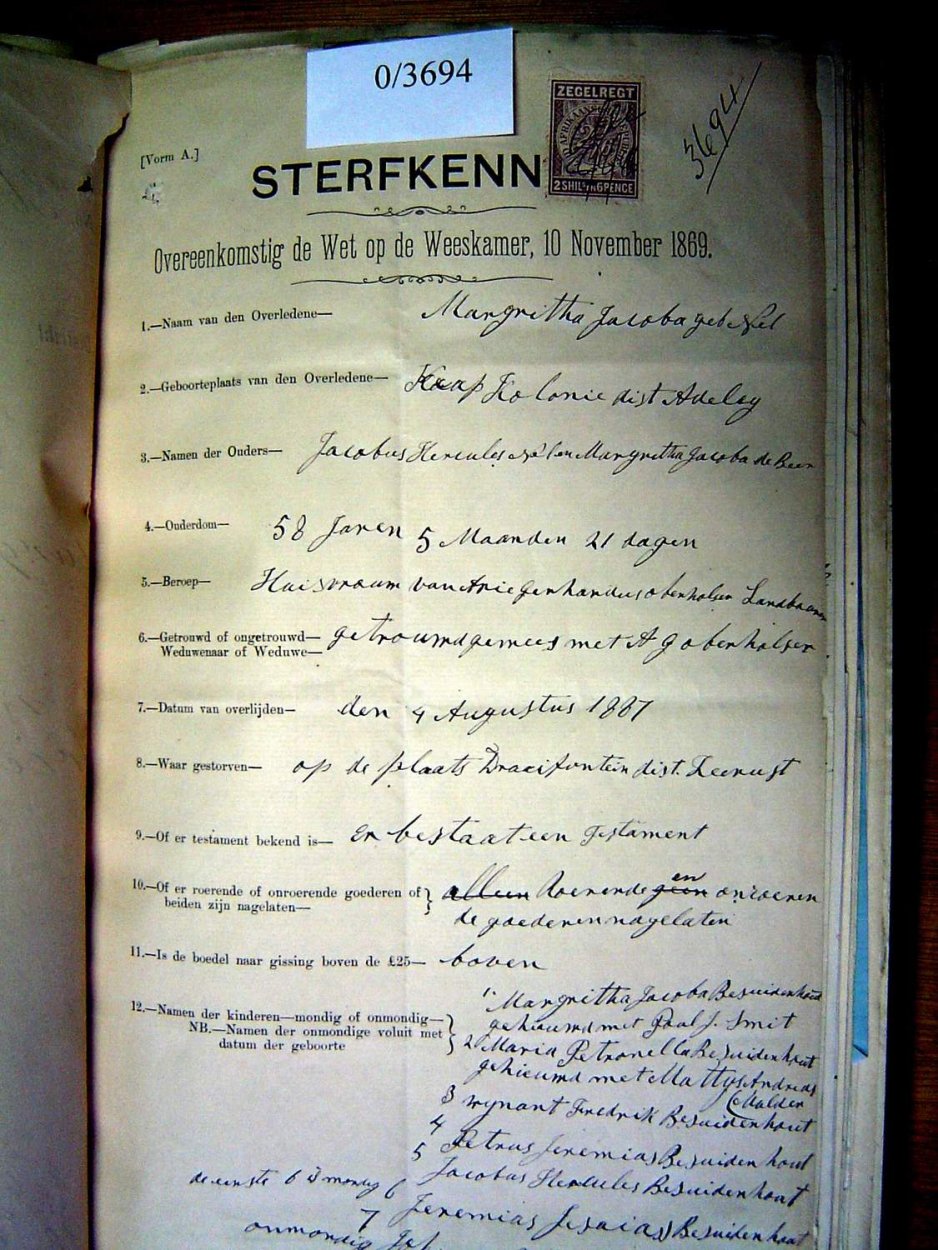 0/3694
ZEGELREGT
2 SHILLING 6 PENCE
3694
[Vorm A.]
STERFKENN
Overeenkomstig de Wet op de Weeskamer, 10 November 1869.
1.—Naam van den Overledene— Margritha Jacoba geb Nel
2.—Geboorteplaats van den Overledene— Kaap Kolonie dist Adeley
3.—Namen der Ouders— Jacobus Hercules Nel en Margritha Jacoba de Beer
4.—Ouderdom— 58 Jaren 5 Maanden 21 dagen
5.—Beroep— Huisvrouw van obenholser Landbouwer
6.—Getrouwd of ongetrouwd— getrouwd gewees met A G obenholser
Weduwenaar of Weduwe—
7.—Datum van overlijden— den 4 Augustus 1887
8.—Waar gestorven— op de plaats dist. Zeerust
9.—Of er testament bekend is— Er bestaat een Testament
10.—Of er roerende of onroerende goederen of alleen Roerende geen en onroeren
beiden zijn nagelaten— de goederen nagelaten
11.—Is de boedel naar gissing boven de £25— boven
12.—Namen der kinderen—mondig of onmondig— 1 Margritha Jacoba Besuidenhout
NB.—Namen der onmondige voluit met gehieuwd met Paul J. Smit
datum der geboorte 2 Maria Petronella Besuidenhout
gehieuwd met Mattys Andreas
Mulder
3 wynant Fredrik Besuidenhout
4 Petrus Jeremias Besuidenhout
5 Jacobus Hercules Besuidenhout
de eerste 6 is mondig 6 Jeremias Jesaias Besuidenhout
7
onmondig